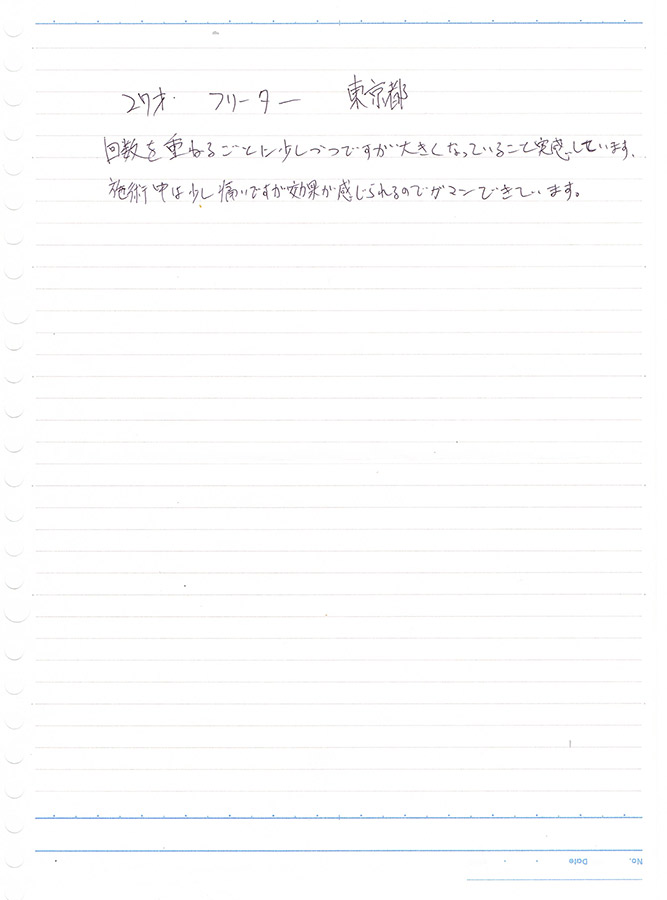 27才. フリーター 東京都
回数を重ねるごとに少しづつですが大きくなっていること実感しています.
施術中は少し痛いですが効果が感じられるのでガマンできています。
No.
Date